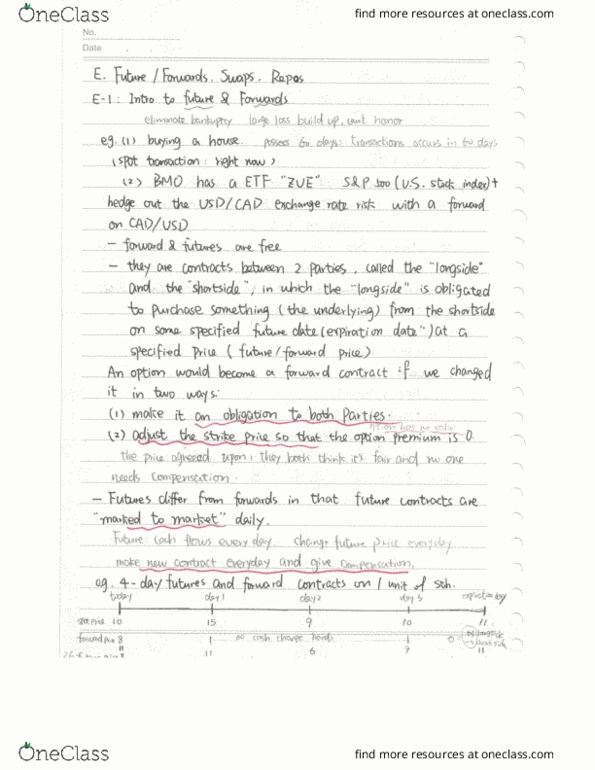 OneClass
find more resources at oneclass.com
No.
Date
E. Future / Forwards. Swaps. Repos
E-1: Intro to future & Forwards
eliminate bankuptcy large loss build up, wont honor
eg. (1) buying a house. posses 60 days: transactions occurs in 60 days
(spot transaction: right now)
(2) BMO has a ETF "ZUE". S&P 500 (U.S. stock index) +
hedge out the USD/CAD exchange rate risk with a forward
on CAD/USD
- forward & futures are free
- they are contracts between 2 parties, called the "longside"
and the "shortside", in which the "longside" is obligated
to purchase something (the underlying) from the shortside
on some specified future date (expiration date") at a
specified price (future/forward price)
An option would become a forward contract if we changed
it in two ways:
(1) make it an obligation to both parties.
option has no
(2) adjust the strike price so that the option premium is 0
the price agreed upon, they both think it's fair and no one
needs compensation.
- Futures differ from forwards in that future contracts are
"marked to market" daily.
Future: cash flows every day. change future price everyday
make new contract everyday and give compensation.
eg. 4-day futures and forward contracts on 1 unit of sth.
today day 1 day 2 day 3 expiration day
spot price 10 15 9 10 11
forward price 8 no cash change hands 0
11 11 6 9 11
OneClass
find more resources at oneclass.com